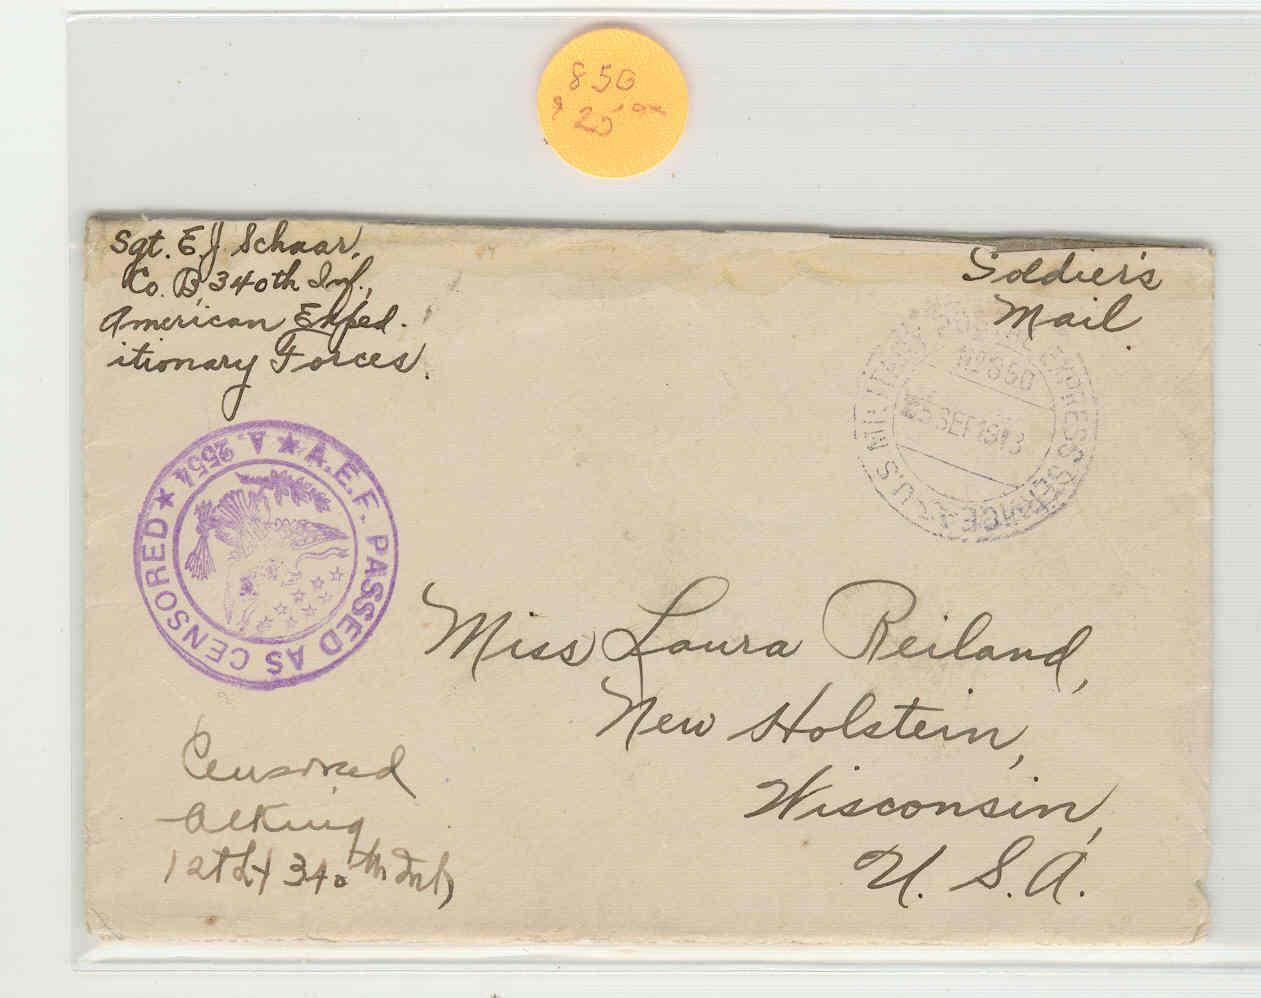 850
$25.00
Sgt. E. J. Schaar,
Co. B, 340th Inf.,
American Exped-
itionary Forces.
Soldier's
Mail.
U.S. MILITARY POSTAL EXPRESS SERVICE
No 850
SEP 1918
A.E.F. PASSED AS CENSORED ★ A. 2554 ★
Miss Laura Reiland,
New Holstein,
Wisconsin,
U. S. A.
Censored
King
1st Lt 340th Inf